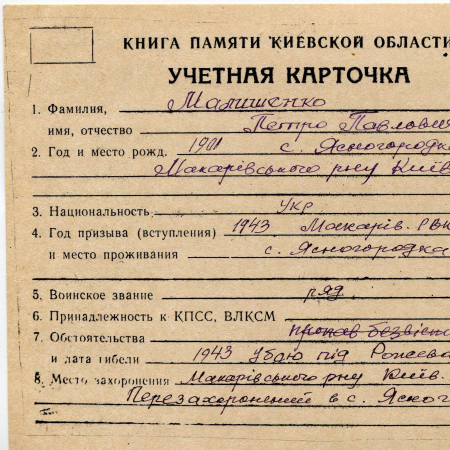 КНИГА ПАМЯТИ КИЕВСКОЙ ОБЛАСТИ
УЧЕТНАЯ КАРТОЧКА
1. Фамилия, Малишенко
имя, отчество Петро Павлович
2. Год и место рожд. 1901 с. Ясногородка
Макарівського р-ну Київ
3. Национальность Укр
4. Год призыва (вступления) 1943 Макарів. РВК
и место проживания с. Ясногородка
5. Воинское звание ряд.
6. Принадлежность к КПСС, ВЛКСМ
7. Обстоятельства пропав безвісти
и дата гибели 1943 у бою під
8. Место захоронения Макарівського р-ну Київ.
Перезахоронений в с. Ясног